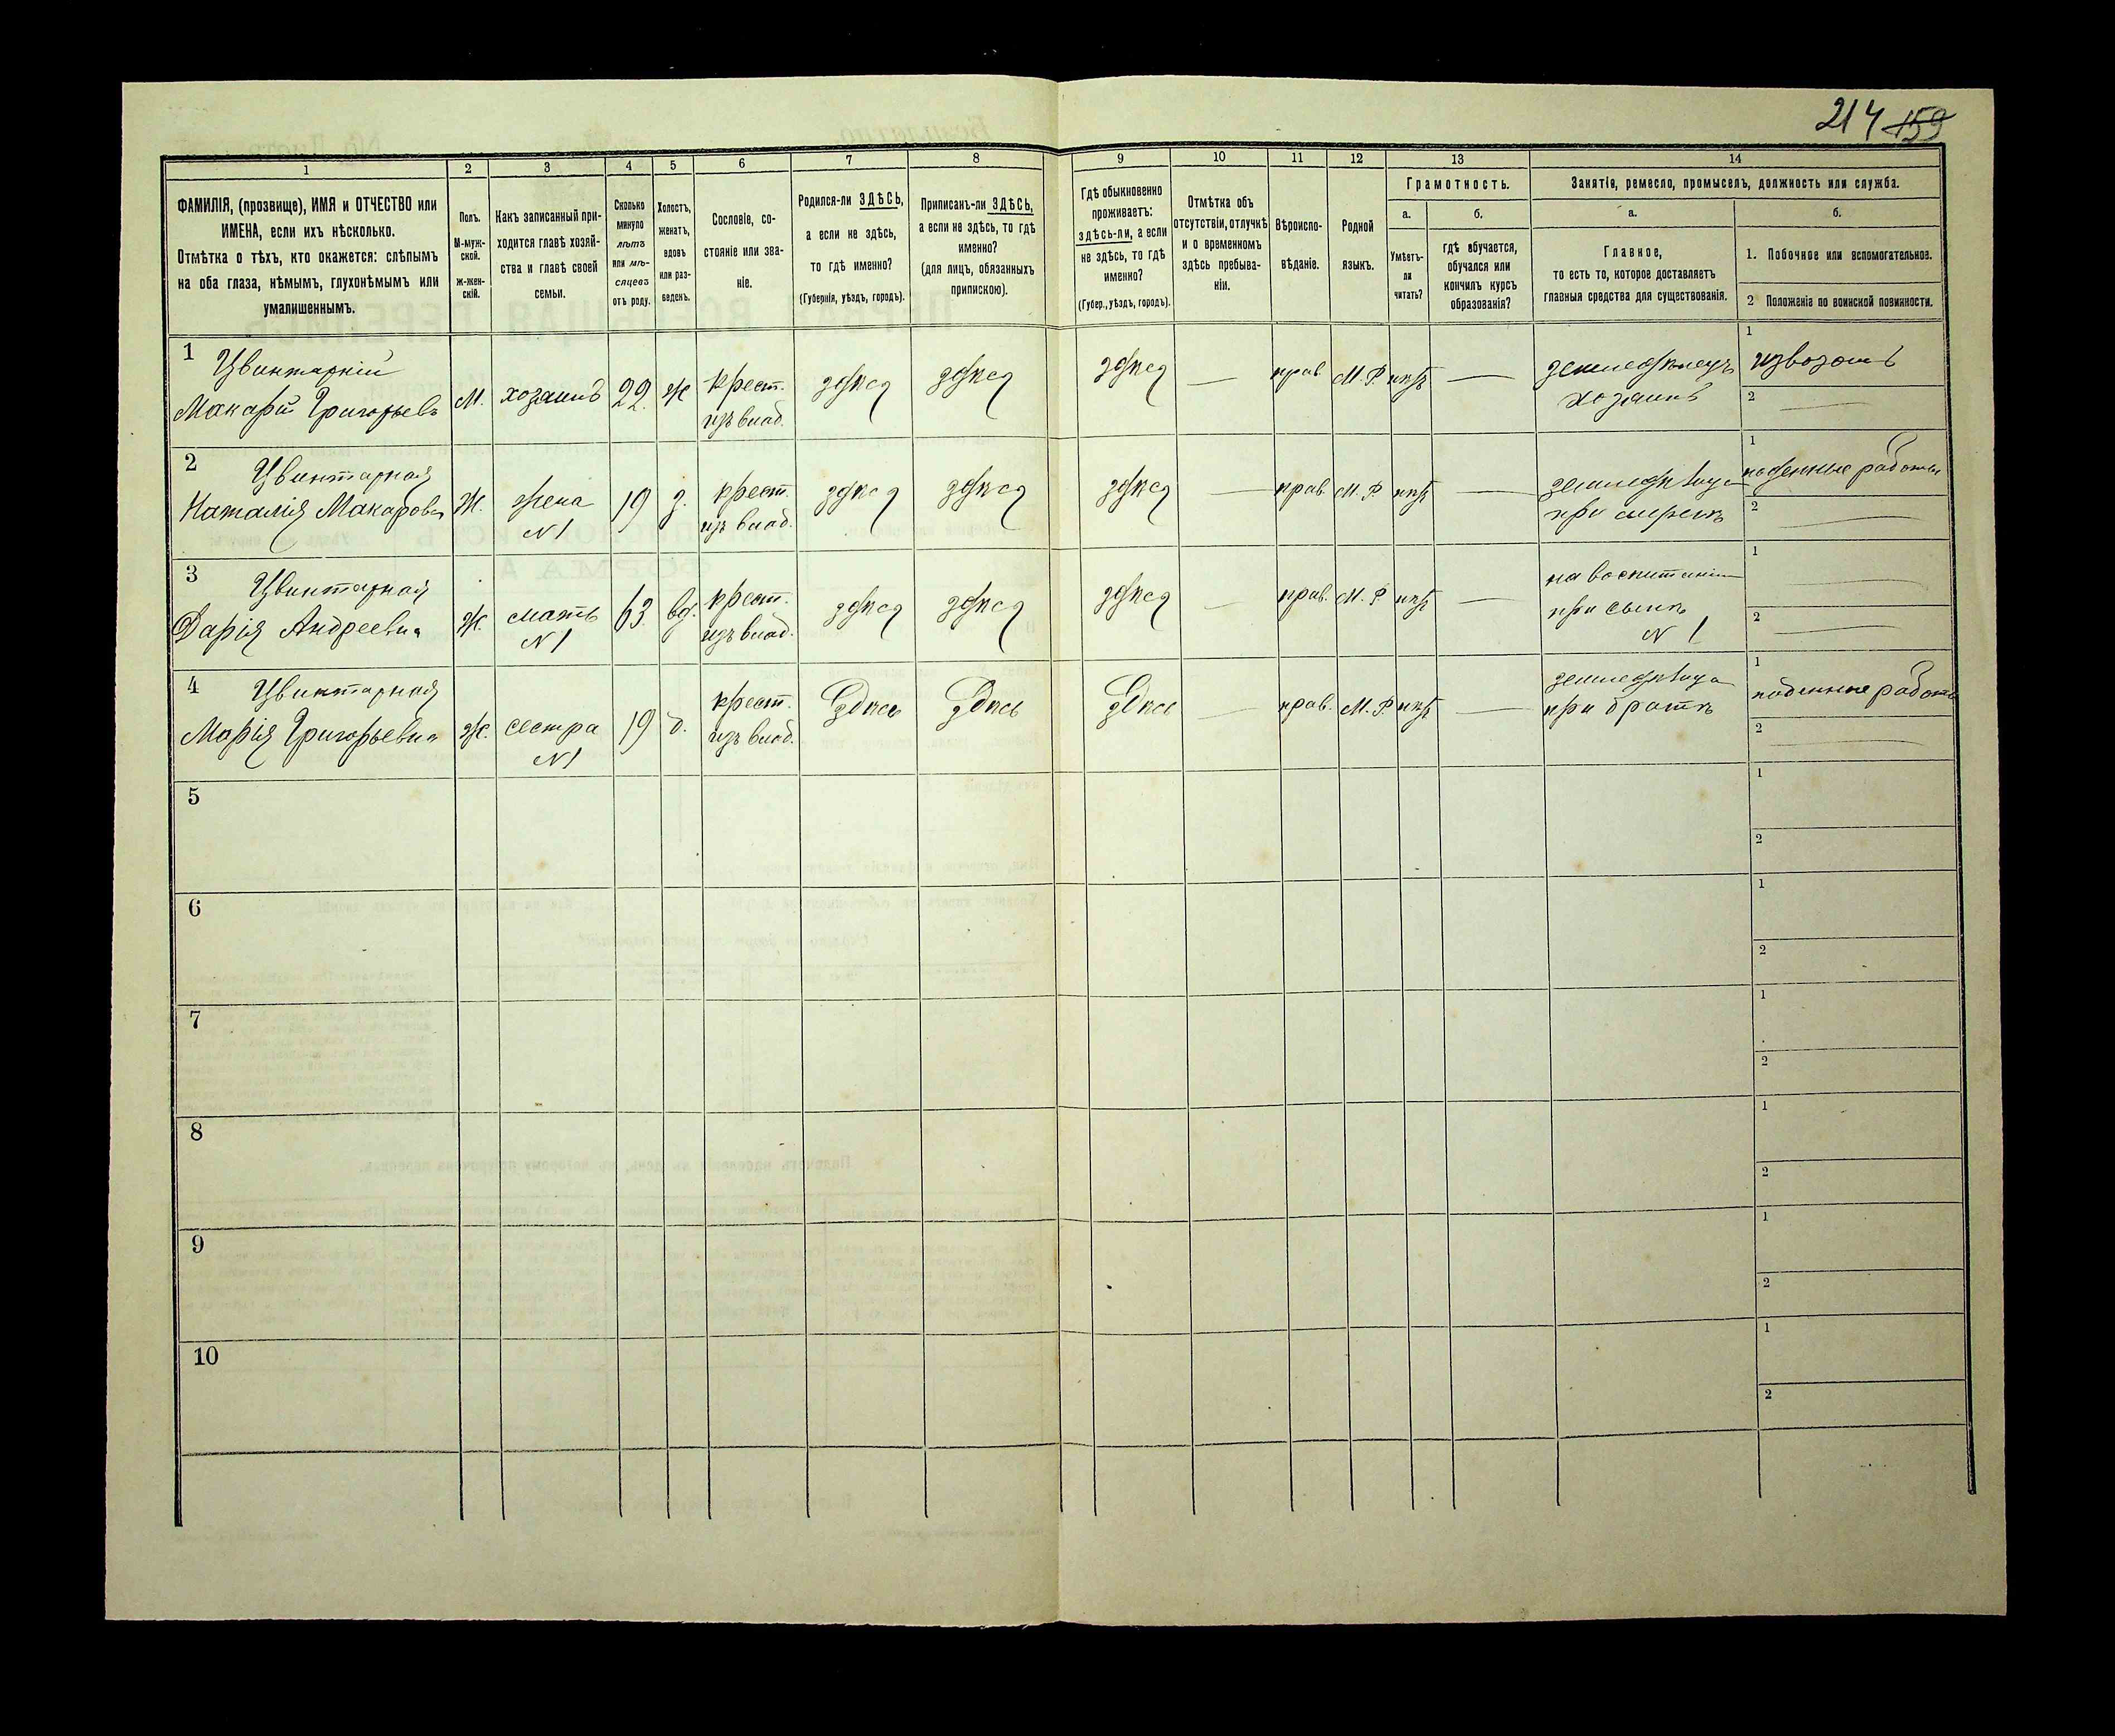 214 159
1 2 3 4 5 6 7 8 9 10 11 12 13 14
ФАМИЛІЯ, (прозвище), ИМЯ и ОТЧЕСТВО или
ИМЕНА, если ихъ нѣсколько.
Отмѣтка о тѣхъ, кто окажется: слѣпымъ
на оба глаза, нѣмымъ, глухонѣмымъ или
умалишеннымъ.
Полъ.
М-муж-
ской.
ж-жен-
скій.
Какъ записанный при-
ходится главѣ хозяй-
ства и главѣ своей
семьи.
Сколько
минуло
лѣтъ
или мѣ-
сяцевъ
отъ роду.
Холостъ,
женатъ,
вдовъ
или раз-
веденъ.
Сословіе, со-
стояніе или зва-
ніе.
Родился-ли ЗДѢСЬ,
а если не здѣсь,
то гдѣ именно?
(Губернія, уѣздъ, городъ).
Приписанъ-ли ЗДѢСЬ,
а если не здѣсь, то гдѣ
именно?
(для лицъ, обязанныхъ
припискою).
Гдѣ обыкновенно
проживаетъ:
здѣсь-ли, а если
не здѣсь, то гдѣ
именно?
(Губер., уѣздъ, городъ).
Отмѣтка объ
отсутствіи, отлучкѣ
и о временномъ
здѣсь пребыва-
ніи.
Вѣроиспо-
вѣданіе.
Родной
языкъ.
Грамотность.
а.
Умѣетъ-
ли
читать?
б.
гдѣ обучается,
обучался или
кончилъ курсъ
образованія?
Занятіе, ремесло, промыселъ, должность или служба.
а.
Главное,
то есть то, которое доставляетъ
главныя средства для существованія.
б.
1. Побочное или вспомогательное.
2 Положеніе по воинской повинности.
1 Цвинтарній
Макарій Григорьевъ
М.
хозяинъ
22
ж
крест.
изъ влад.
здѣсь
здѣсь
здѣсь
—
прав.
М.Р.
нѣтъ
—
земледѣлецъ
хозяинъ
1 извозомъ
2 —
2 Цвинтарная
Наталія Макаровна
Ж.
жена
N 1
19
з.
крест.
изъ влад.
здѣсь
здѣсь
здѣсь
—
прав.
М.Р.
нѣтъ
—
земледѣлица
при мужѣ
1 поденные работы
2
3 Цвинтарная
Дарія Андреевна
Ж.
мать
N 1
63
вд.
крест.
изъ влад.
здѣсь
здѣсь
здѣсь
—
прав.
М.Р.
нѣтъ
—
на воспитаніи
при сынѣ
N 1
1 —
2 —
4 Цвинтарная
Марія Григорьевна
Ж.
сестра
N 1
19
д.
крест.
изъ влад.
Здѣсь
Здѣсь
Здѣсь
—
прав.
М.Р.
нѣтъ
—
земледѣлица
при братѣ
1 поденные работы
2 —
5
1
2
6
1
2
7
1
2
8
1
2
9
1
2
10
1
2